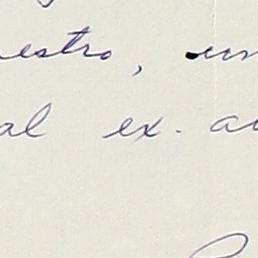 estro, un
al ex-a